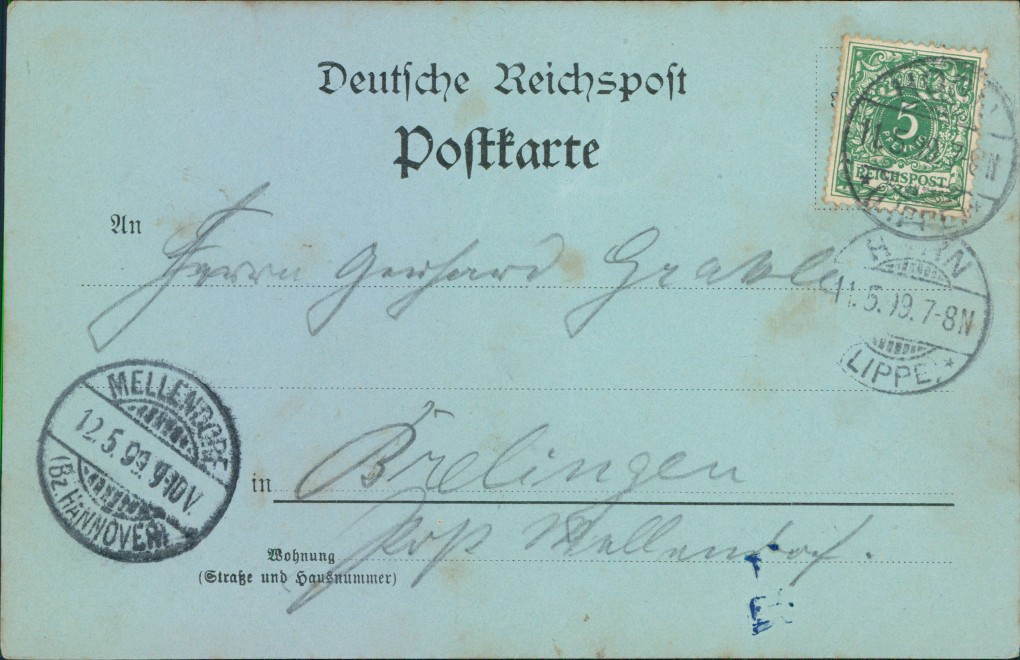 Deutsche Reichspost
Postkarte
5
PFENNIG
REICHSPOST
An
Herrn Gerhard
11.5.99.7-8N
(LIPPE)*
MELLENDORF
12.5.99.9-10V.
(Bz. HANNOVER)
in Brelingen
Wohnung
(Straße und Hausnummer)
Post Mellendorf.